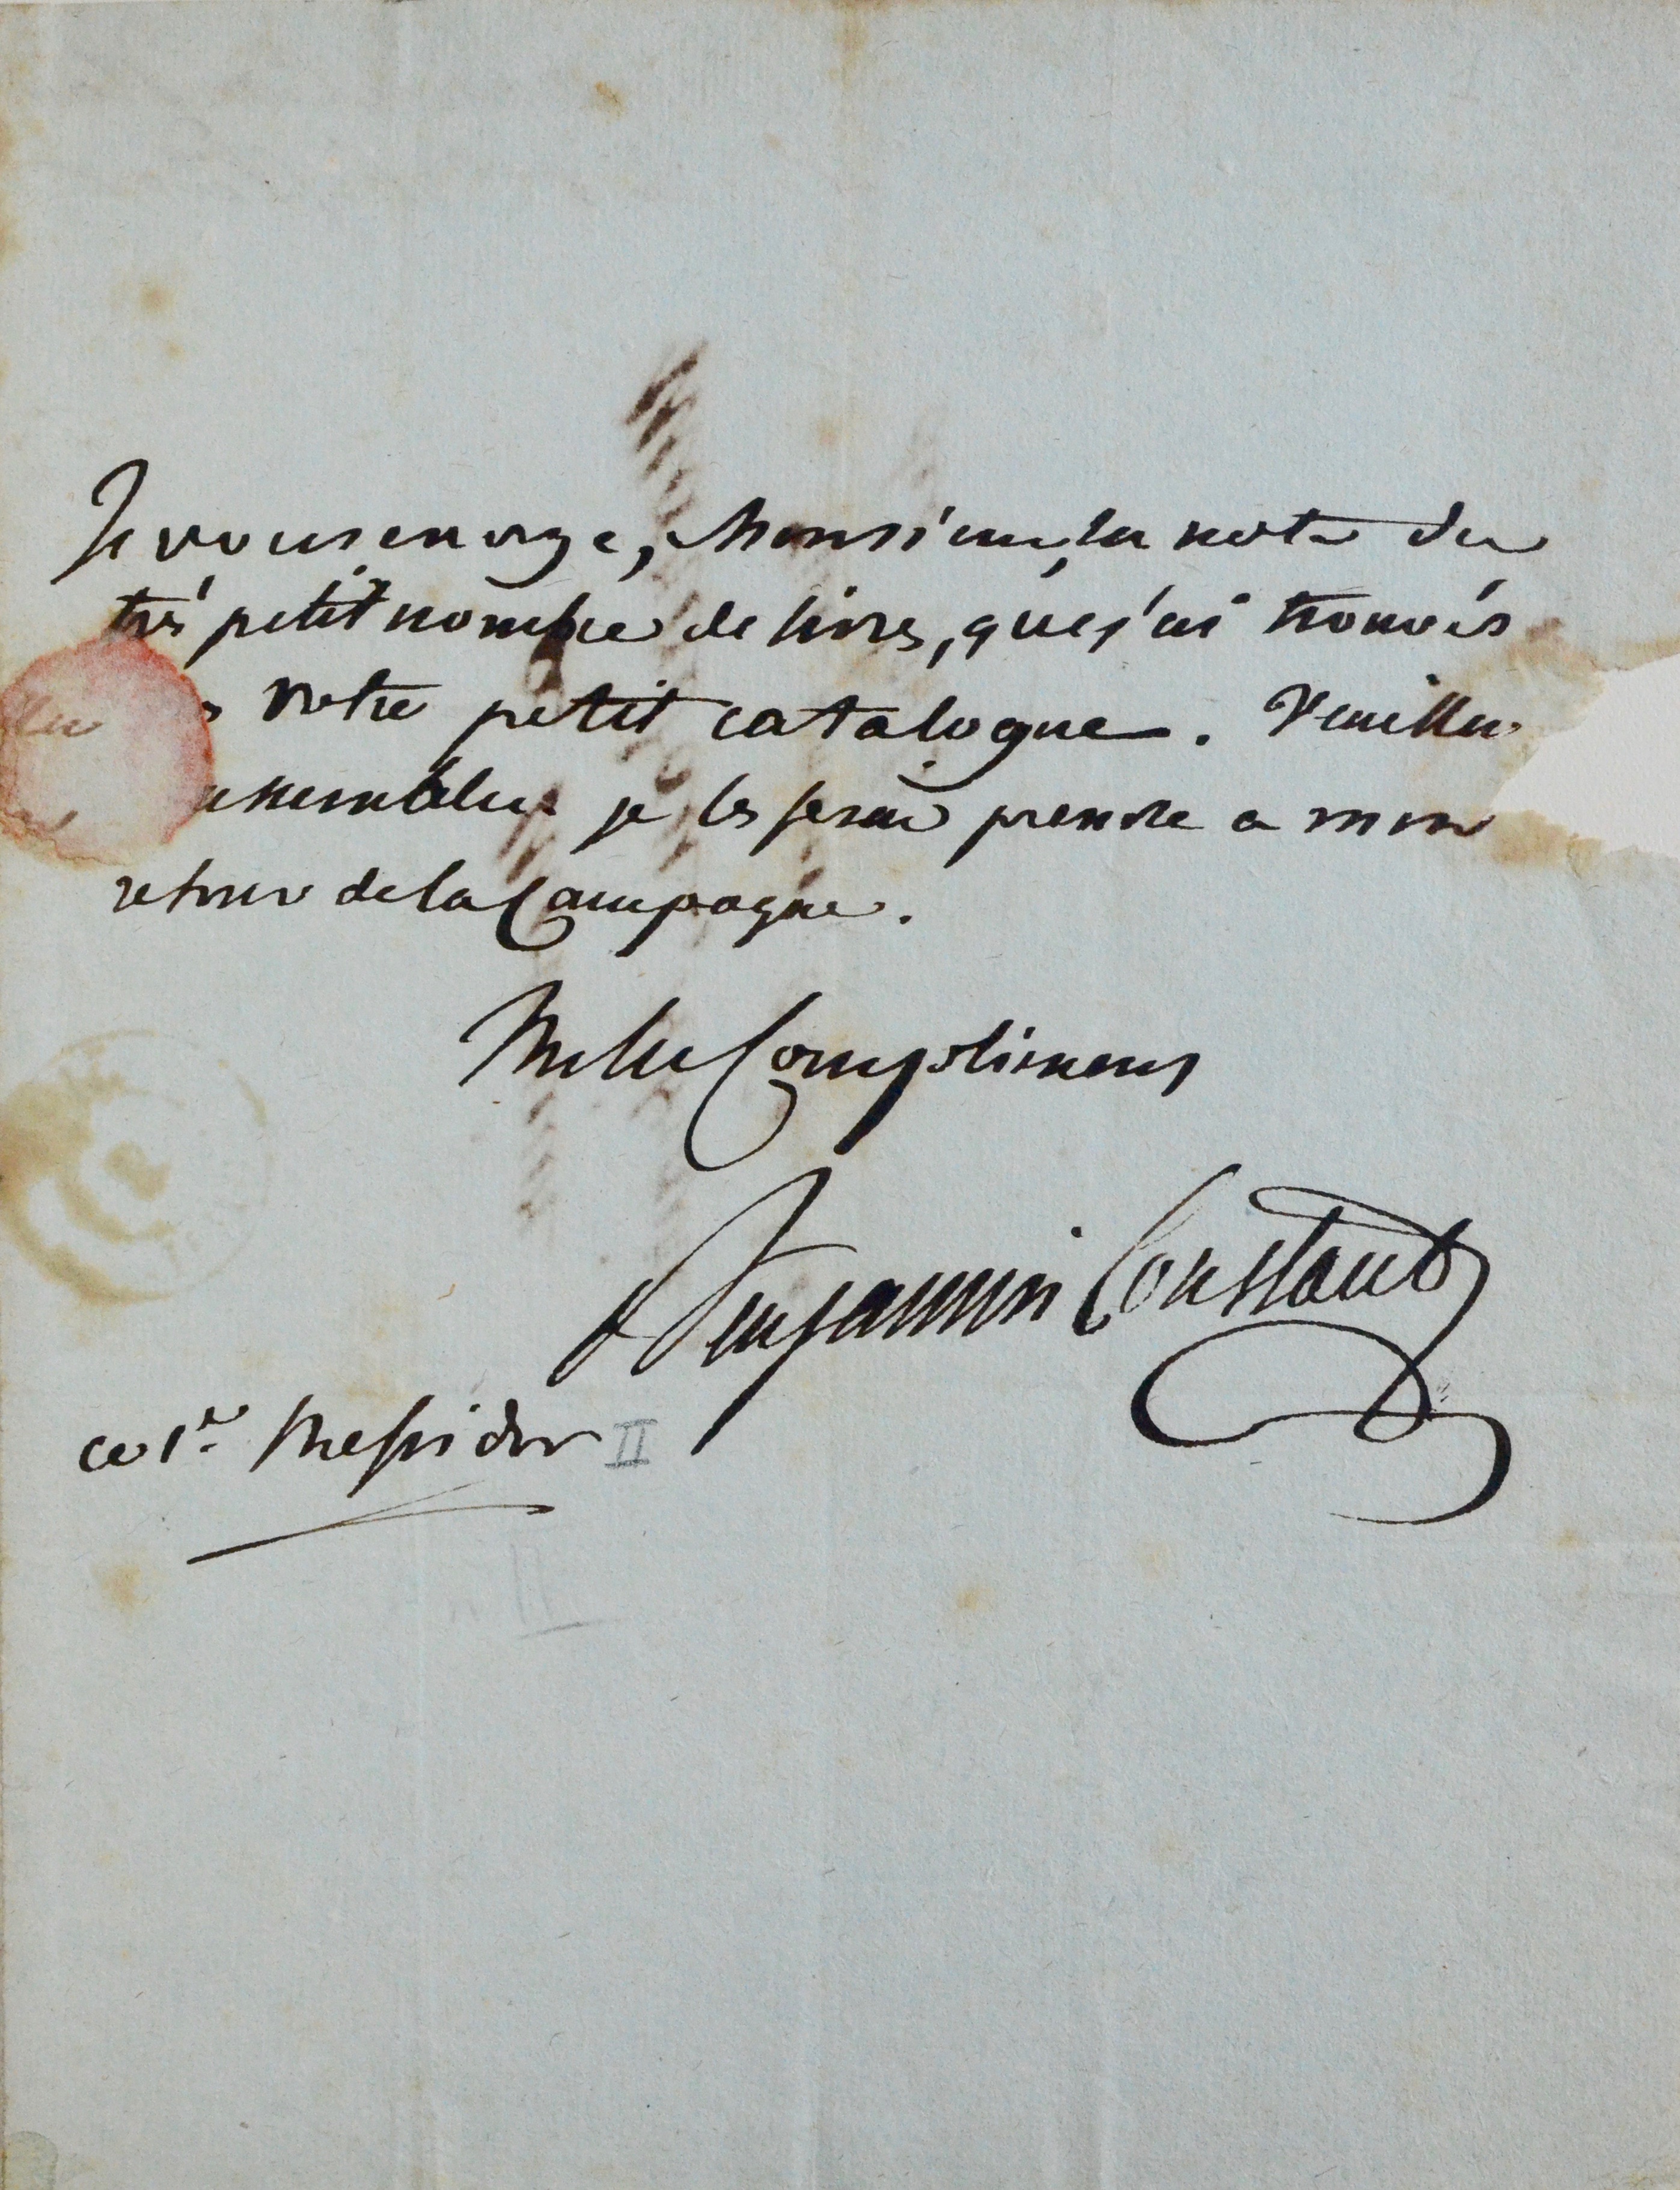 Je vous envoye, Monsieur, la note du
très petit nombre de livres, que j'ai trouvés
votre petit catalogue. Veuillez
assembler je les ferai prendre a mon
retour de la Campagne.
Mille Complimens
Benjamin Constant
ce 1er Messidor II